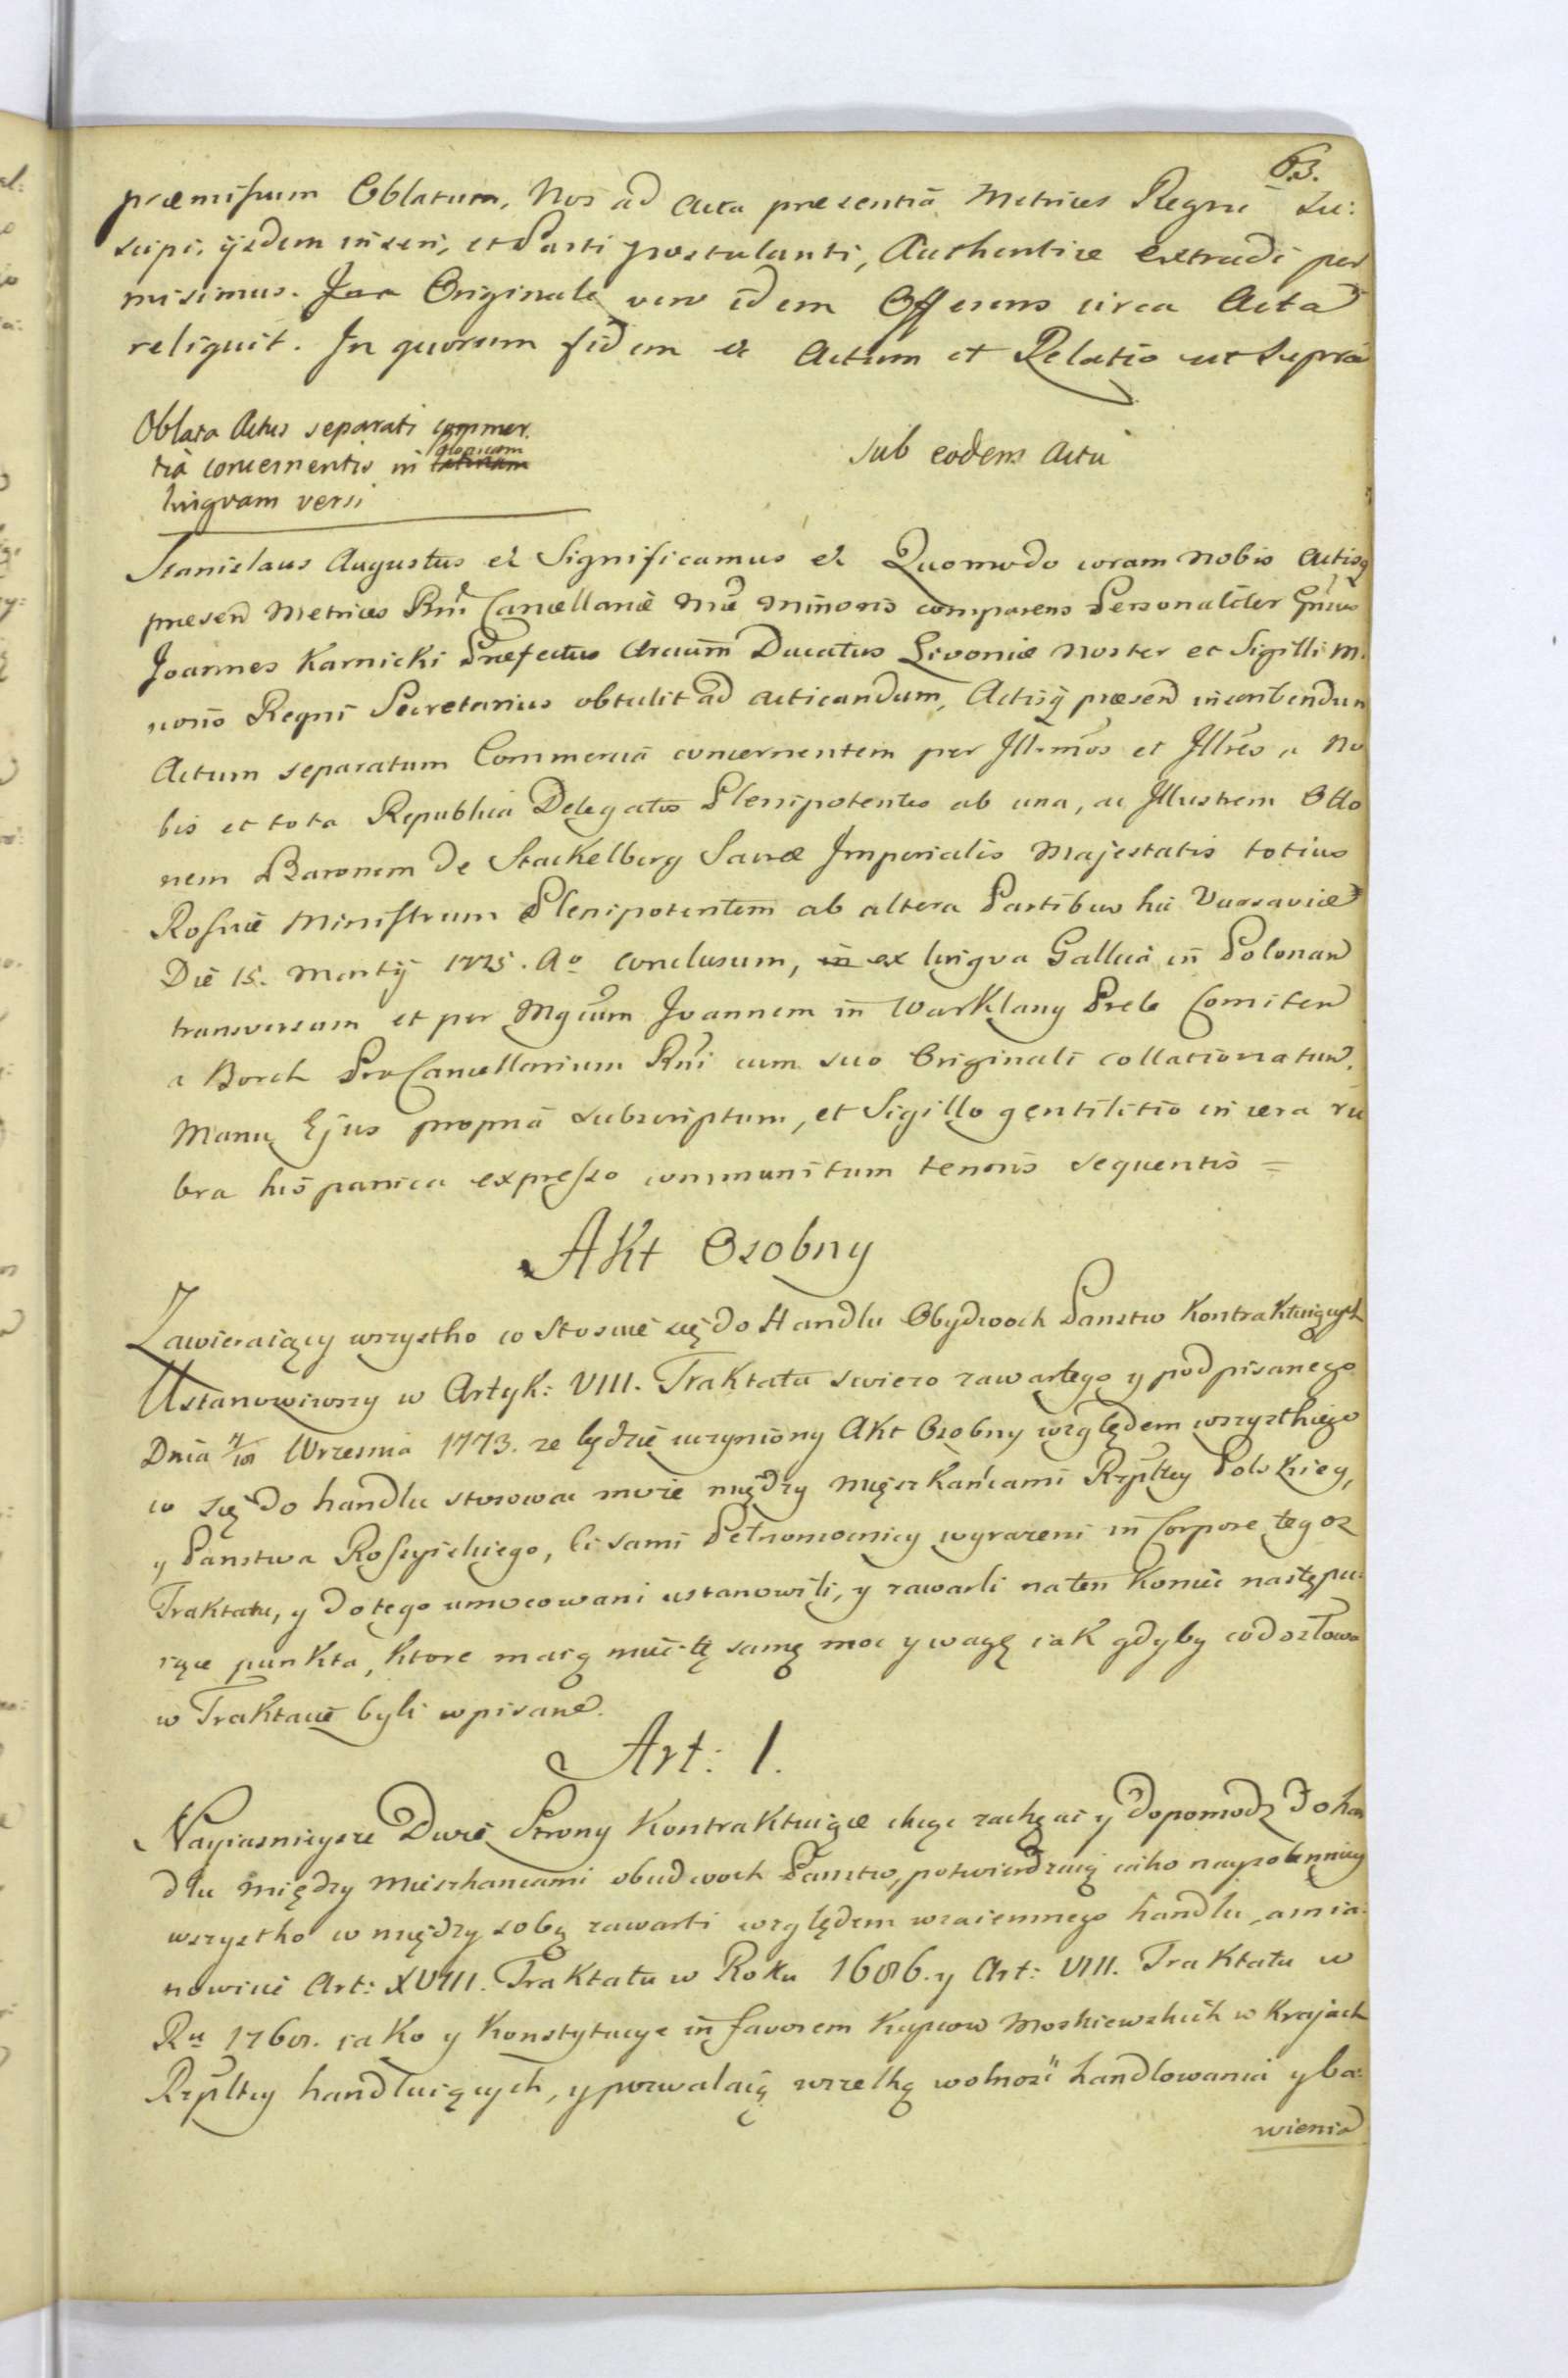 63.
præmissum Oblatum, Nos ad Acta præsentia Metrices Regni Su:
scipi, ijsdem inseri, et Parti postulanti, Authentice extradi per
misimus. Originale vero idem Offerens circa Acta
reliquit. In quorum fidem &c Actum et Relatio ut Supra
Oblata Actus separati commer.
tia concernentis in polonicam
lingvam versi
sub eodem Actu
Stanislaus Augustus &c Significamus &c Quomodo coram nobis Actisq
præsen Metrices Rni Cancellariæ Mae Minoris comparens Personaliter Gnrus
Joannes Karnicki Præfectus Arcium Ducatus Livoniæ Noster et Sigilli M.
noris Regni Secretarius obtulit ad acticandum, Actisq præsen inscribendum
Actum separatum Commercia concernentem per Illmos et Illres a No
bis et tota Republica Delegatos Plenipotentes ab una, ac Illustrem Otto
nem Baronem de Stackelberg Sacræ Imperialis Majestatis totius
Rossiæ Ministrum Plenipotentem ab altera Partibus hic Varsaviæ
Die 15. Martij 1775. Ao conclusum, in ex lingva Gallica in Polonam
transversum et per Mgcum Joannem in Warklany Preli Comitem
a Borch ProCancellarium Rni cum suo Originali collationatum.
Manu Ejus propria subscriptum, et Sigillo gentilitio in cera ru
bra hispanica expresso communitum tenoris sequentis =
Akt Osobny
Zawieraiący wszystko co stosuie się do Handlu Obydwoch Panstw Kontraktuiących
Ustanowiwszy w Artyk: VIII. Traktatu swiezo zawartego y podpisanego
Dnia 7/18 Wrzesnia 1773. ze będzie uczyniony Akt Osobny względem wszystkiego
co się do handlu stosowac moze między Mięszkańcami Rzpltey Polskiey,
y Panstwa Rossyiskiego, Ci sami Pełnomocnicy wyrazeni in Corpore tegoz
Traktatu, y do tego umocowani ustanowili, y zawarli na ten koniec następu:
iące punkta, ktore maią mieć tę samę moc y wagę iak gdyby co do słowa
w Traktacie byli wpisane.
Art: I.
Nayiasnieysze Dwie Strony Kontraktuiące chcąc zachęcać y dopomodz do han
dlu między Mieszkancami obudwoch Panstw, potwierdzaią iako nayzobopniey
wszystko co między sobą zawarli względem wzaiemnego handlu, a mia:
nowicie Art: XVIII. Traktatu w Roku 1686. y Art: VIII. Traktatu w
Ru 1768. iako y Konstytucye in favorem Kupcow Moskiewskich w Krajach
Rzpltey handluiących, y pozwalaią wszelką wolność handlowania y ba:
wienia